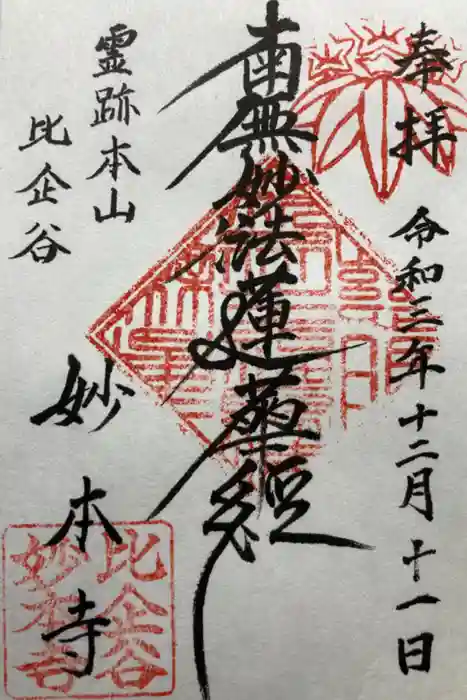 奉拝
令和三年十二月十一日
南無妙法蓮華経
霊跡本山
比企谷
妙本寺
比企谷
妙本寺